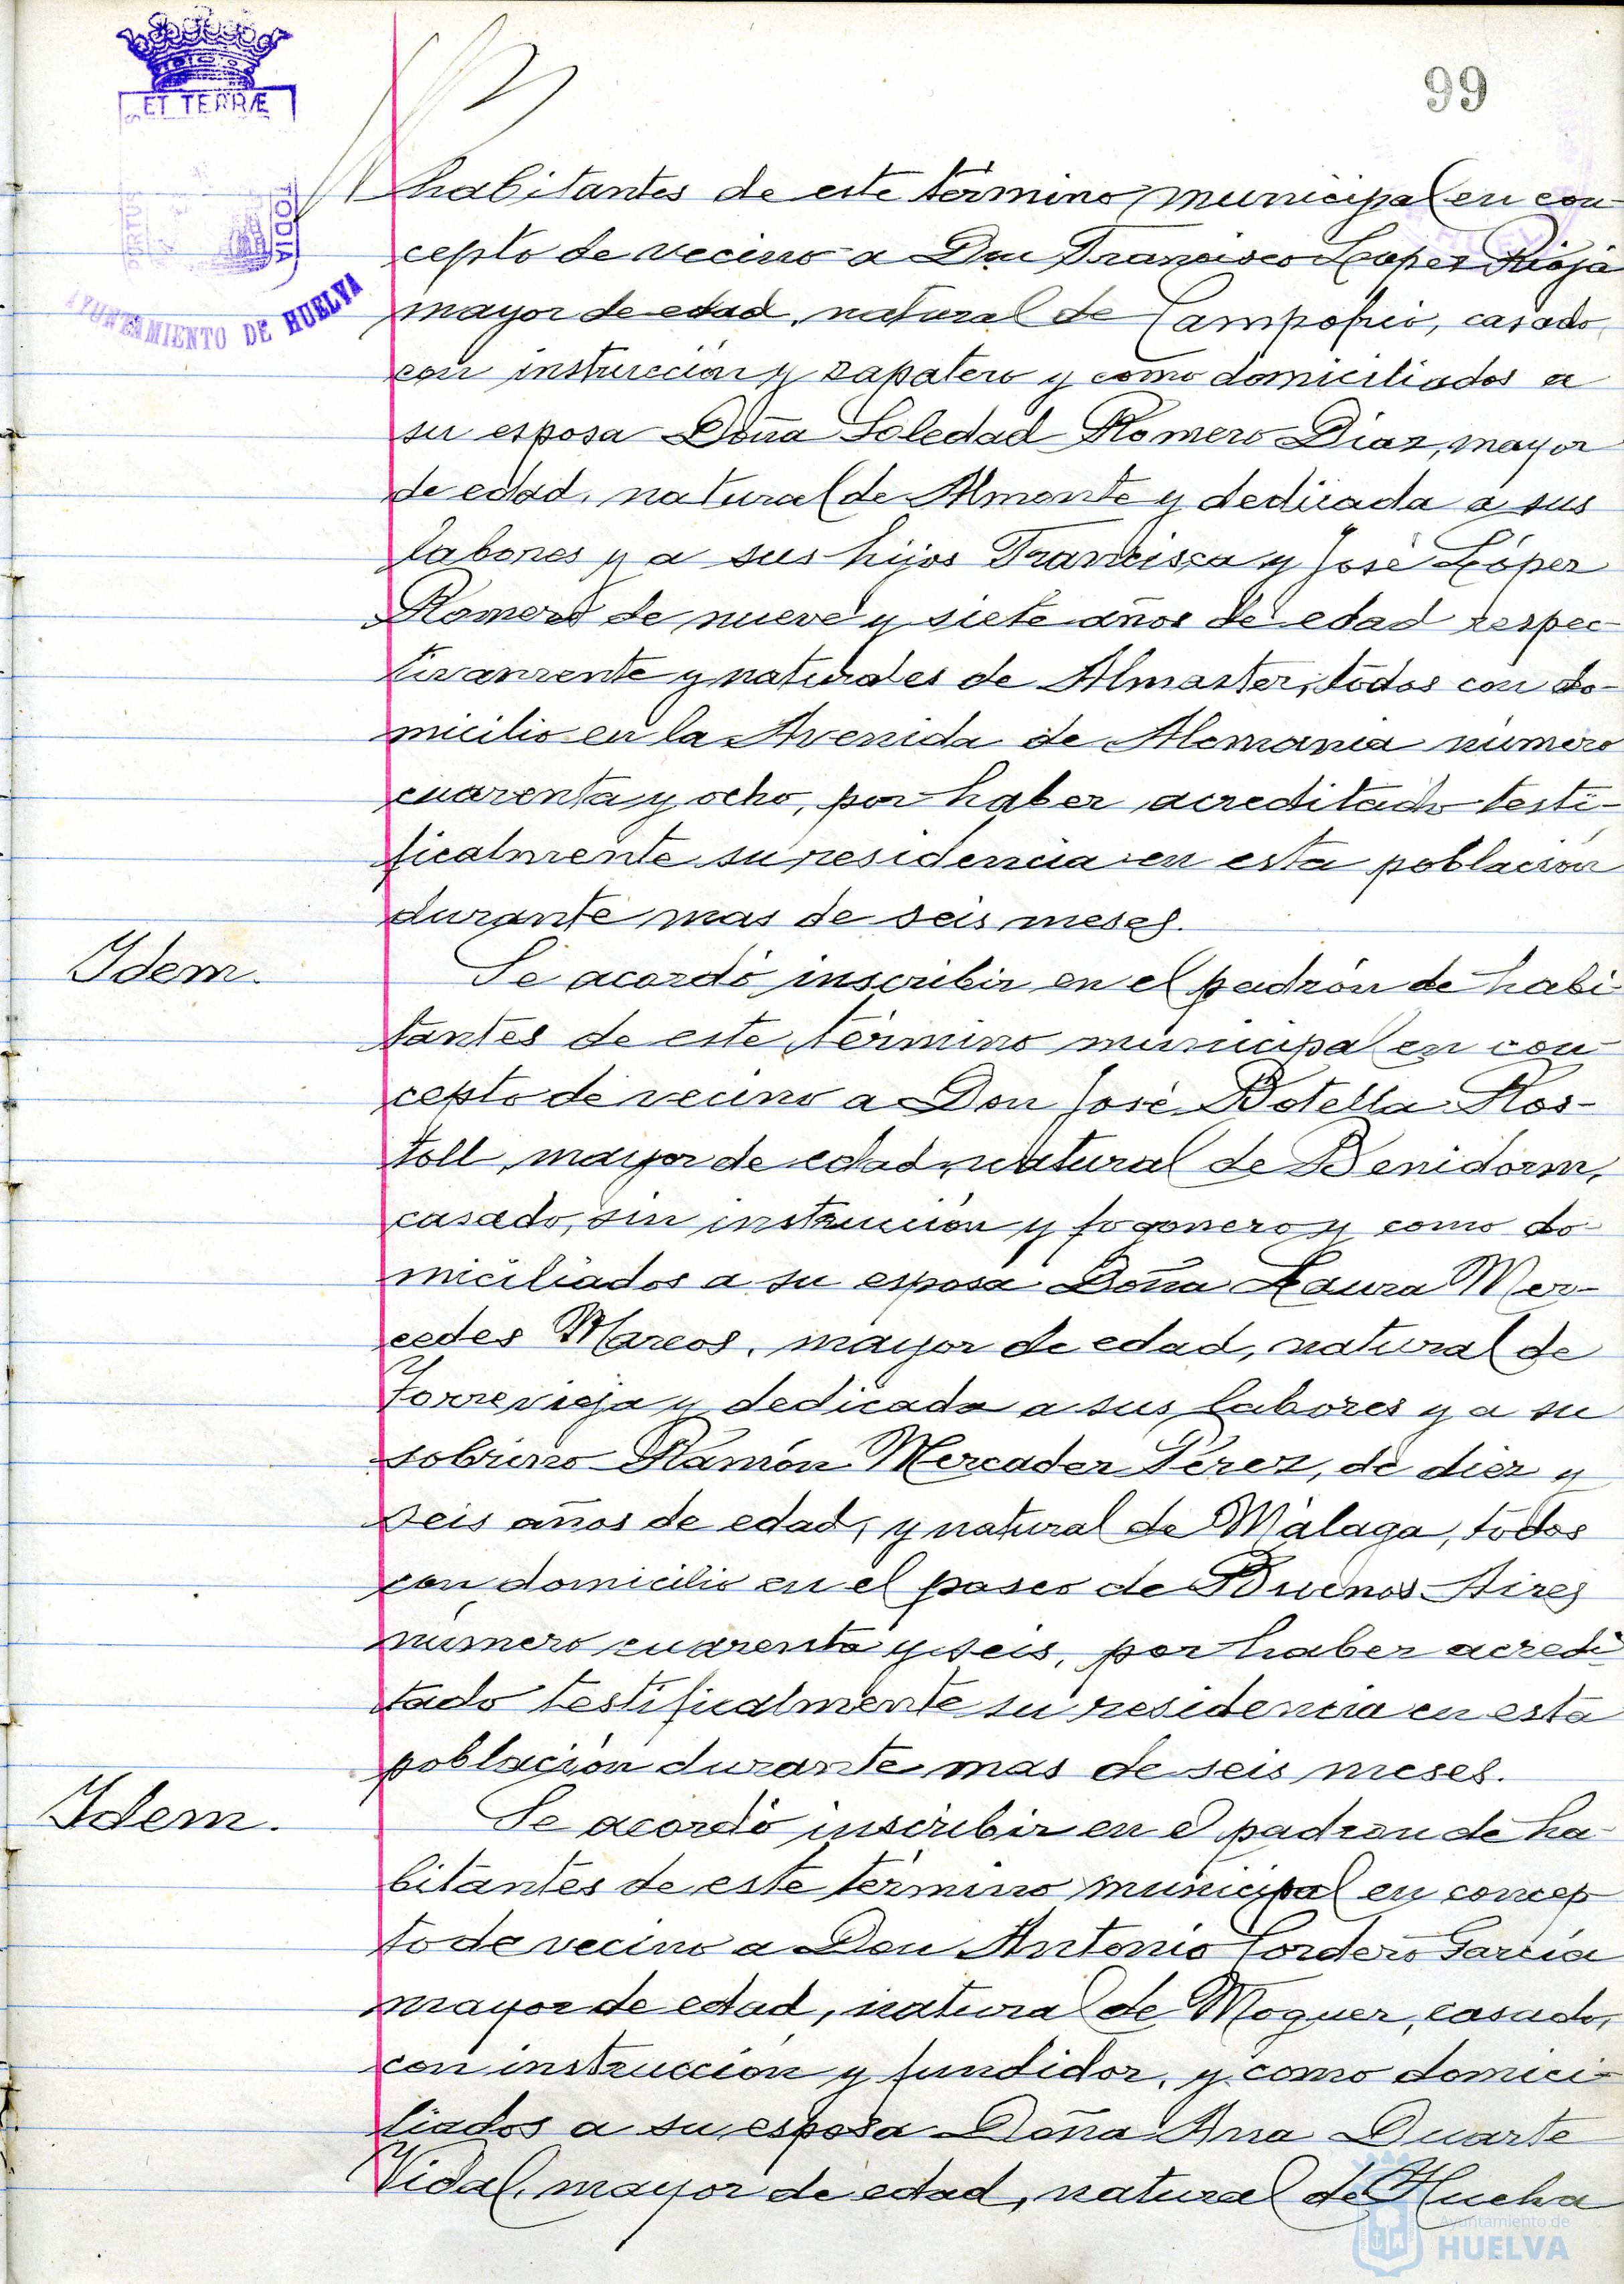 ET TERRÆ
99
PORTUS
TODIA
AYUNTAMIENTO DE HUELVA
habitantes de este término municipal en con-
cepto de vecino a Don Francisco Lopez Rioja
mayor de edad, natural de Campofrio, casado,
con instrucción y zapatero y como domiciliados a
su esposa Doña Soledad Romero Diaz, mayor
de edad, natural de Almonte y dedicada a sus
labores y a sus hijos Francisca y José López
Romero de nueve y siete años de edad respec-
tivamente y naturales de Almaster, todos con do-
micilio en la Avenida de Alemania número
cuarenta y ocho, por haber acreditado testi-
ficalmente su residencia en esta población
durante mas de seis meses.
Idem.
Se acordó inscribir en el padrón de habi-
tantes de este término municipal en con-
cepto de vecino a Don José Botella Ros-
toll, mayor de edad, natural de Benidorm,
casado, sin instrucción y fogonero y como do-
miciliados a su esposa Doña Laura Mer-
cedes Marcos, mayor de edad, natural de
Torrevieja y dedicada a sus labores y a su
sobrino Ramón Mercader Pérez, de diez y
seis años de edad, y natural de Málaga, todos
con domicilio en el paseo de Buenos Aires
número cuarenta y seis, por haber acredi-
tado testificalmente su residencia en esta
población durante mas de seis meses.
Idem.
Se acordó inscribir en el padron de ha-
bitantes de este término municipal en concep-
to de vecino a Don Antonio Cordero García
mayor de edad, natural de Moguer, casado,
con instrucción y fundidor, y como domici-
liados a su esposa Doña Ana Duarte
Vidal, mayor de edad, natural de Huelva
Ayuntamiento de
HUELVA